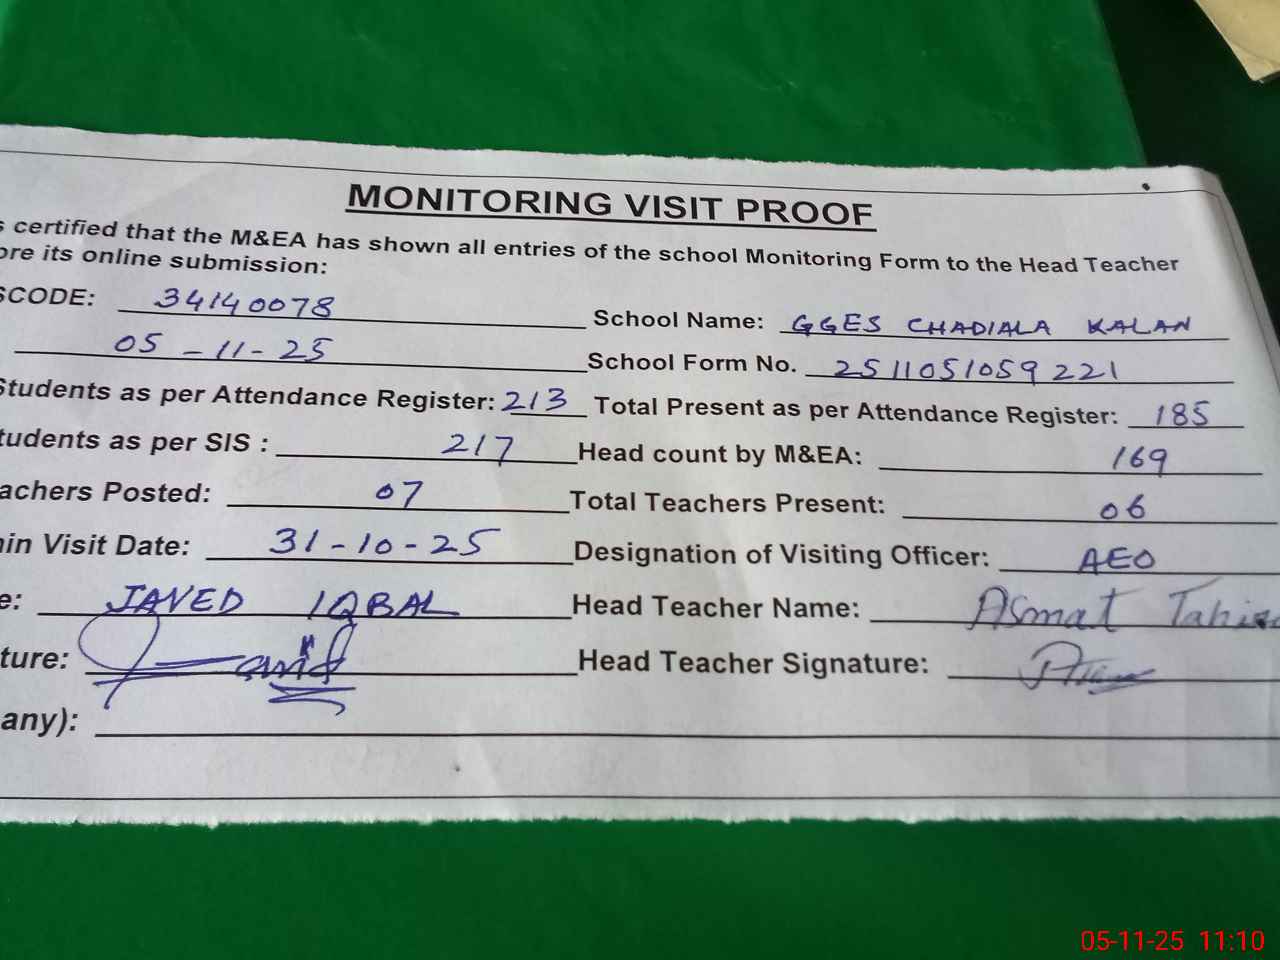 MONITORING VISIT PROOF
s certified that the M&EA has shown all entries of the school Monitoring Form to the Head Teacher
ore its online submission:
SCODE: 34140078 School Name: GGES CHADIALA KALAN
05-11-25 School Form No. 2511051059221
Students as per Attendance Register: 213 Total Present as per Attendance Register: 185
tudents as per SIS : 217 Head count by M&EA: 169
achers Posted: 07 Total Teachers Present: 06
in Visit Date: 31-10-25 Designation of Visiting Officer: AEO
e: JAVED IQBAL Head Teacher Name: Asmat Tahira
ture: Javid Head Teacher Signature:
any):
05-11-25 11:10